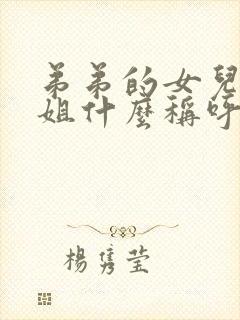 弟弟的女兒
姐什麼稱呼
楊隽莹